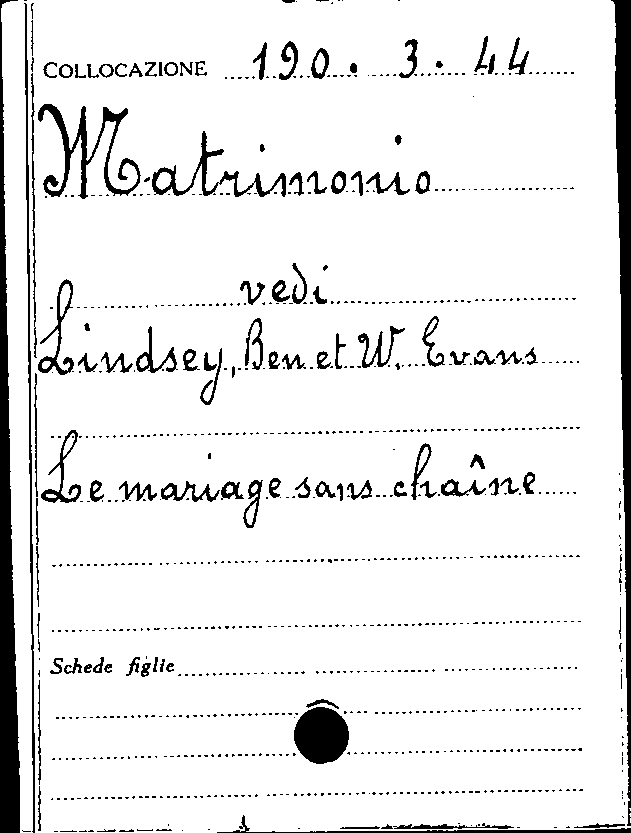 COLLOCAZIONE 190.3.44
Matrimonio
vedi
Lindsey, Ben et W. Evans
Le mariage sans chaîne
Schede figlie